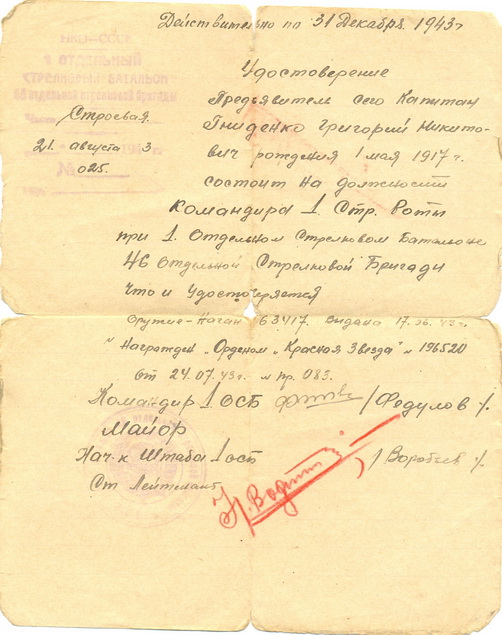 Действительно по 31 Декабря 1943г
НКО-СССР
1 ОТДЕЛЬНЫЙ
СТРЕЛКОВЫЙ БАТАЛЬОН
отдельной стрелковой бригады
Строевая.
21. августа 3
№ 025.
Удостоверение
Предъявитель сего Капитан
Гниденко Григорий Никито-
вич рождения 1 мая 1917 г.
состоит на должности
Командира 1. Стр. Роты
при 1. Отдельном Стрелковом Батальоне
46 Отдельной Стрелковой Бригады
Что и Удостоверяется
Оружие-Наган 63417. Выдана 17.06.43г.
Награжден „Орденом „Красная Звезда" № 196520
От 24.07.43г. пр. 083.
Командир 1 ОСБ /Федулов/
Майор
Нач-к Штаба 1 ОСБ /Воробьев/
Ст Лейтенант